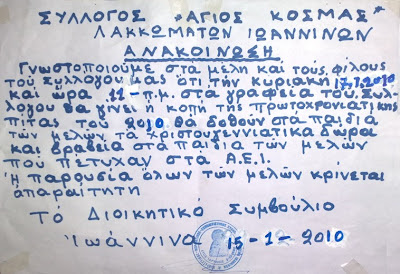 ΣΥΛΛΟΓΟΣ "ΑΓΙΟΣ ΚΟΣΜΑΣ"
ΛΑΚΚΩΜΑΤΩΝ ΙΩΑΝΝΙΝΩΝ
ΑΝΑΚΟΙΝΩΣΗ
Γνωστοποιούμε στα μέλη και τους φίλους
τού συλλόγου μας ότι τήν κυριακή
και ώρα 11 - π.μ. στα γραφεία του Συλ-
λόγου θα γίνει ή κοπή της πρωτοχρονιάτικης
πίτας τού 2010 θα δοθούν στά παιδιά
των μελών τα χριστουγεννιάτικα δώρα
και βραβεία στα παιδία τών μελών
πού πέτυχαν στά Α.Ε.Ι.
ή παρουσία όλων τών μελών κρίνεται
απαραίτητη
Τό Διοικητικό Συμβούλιο
Ιωάννινα 15-1-2010